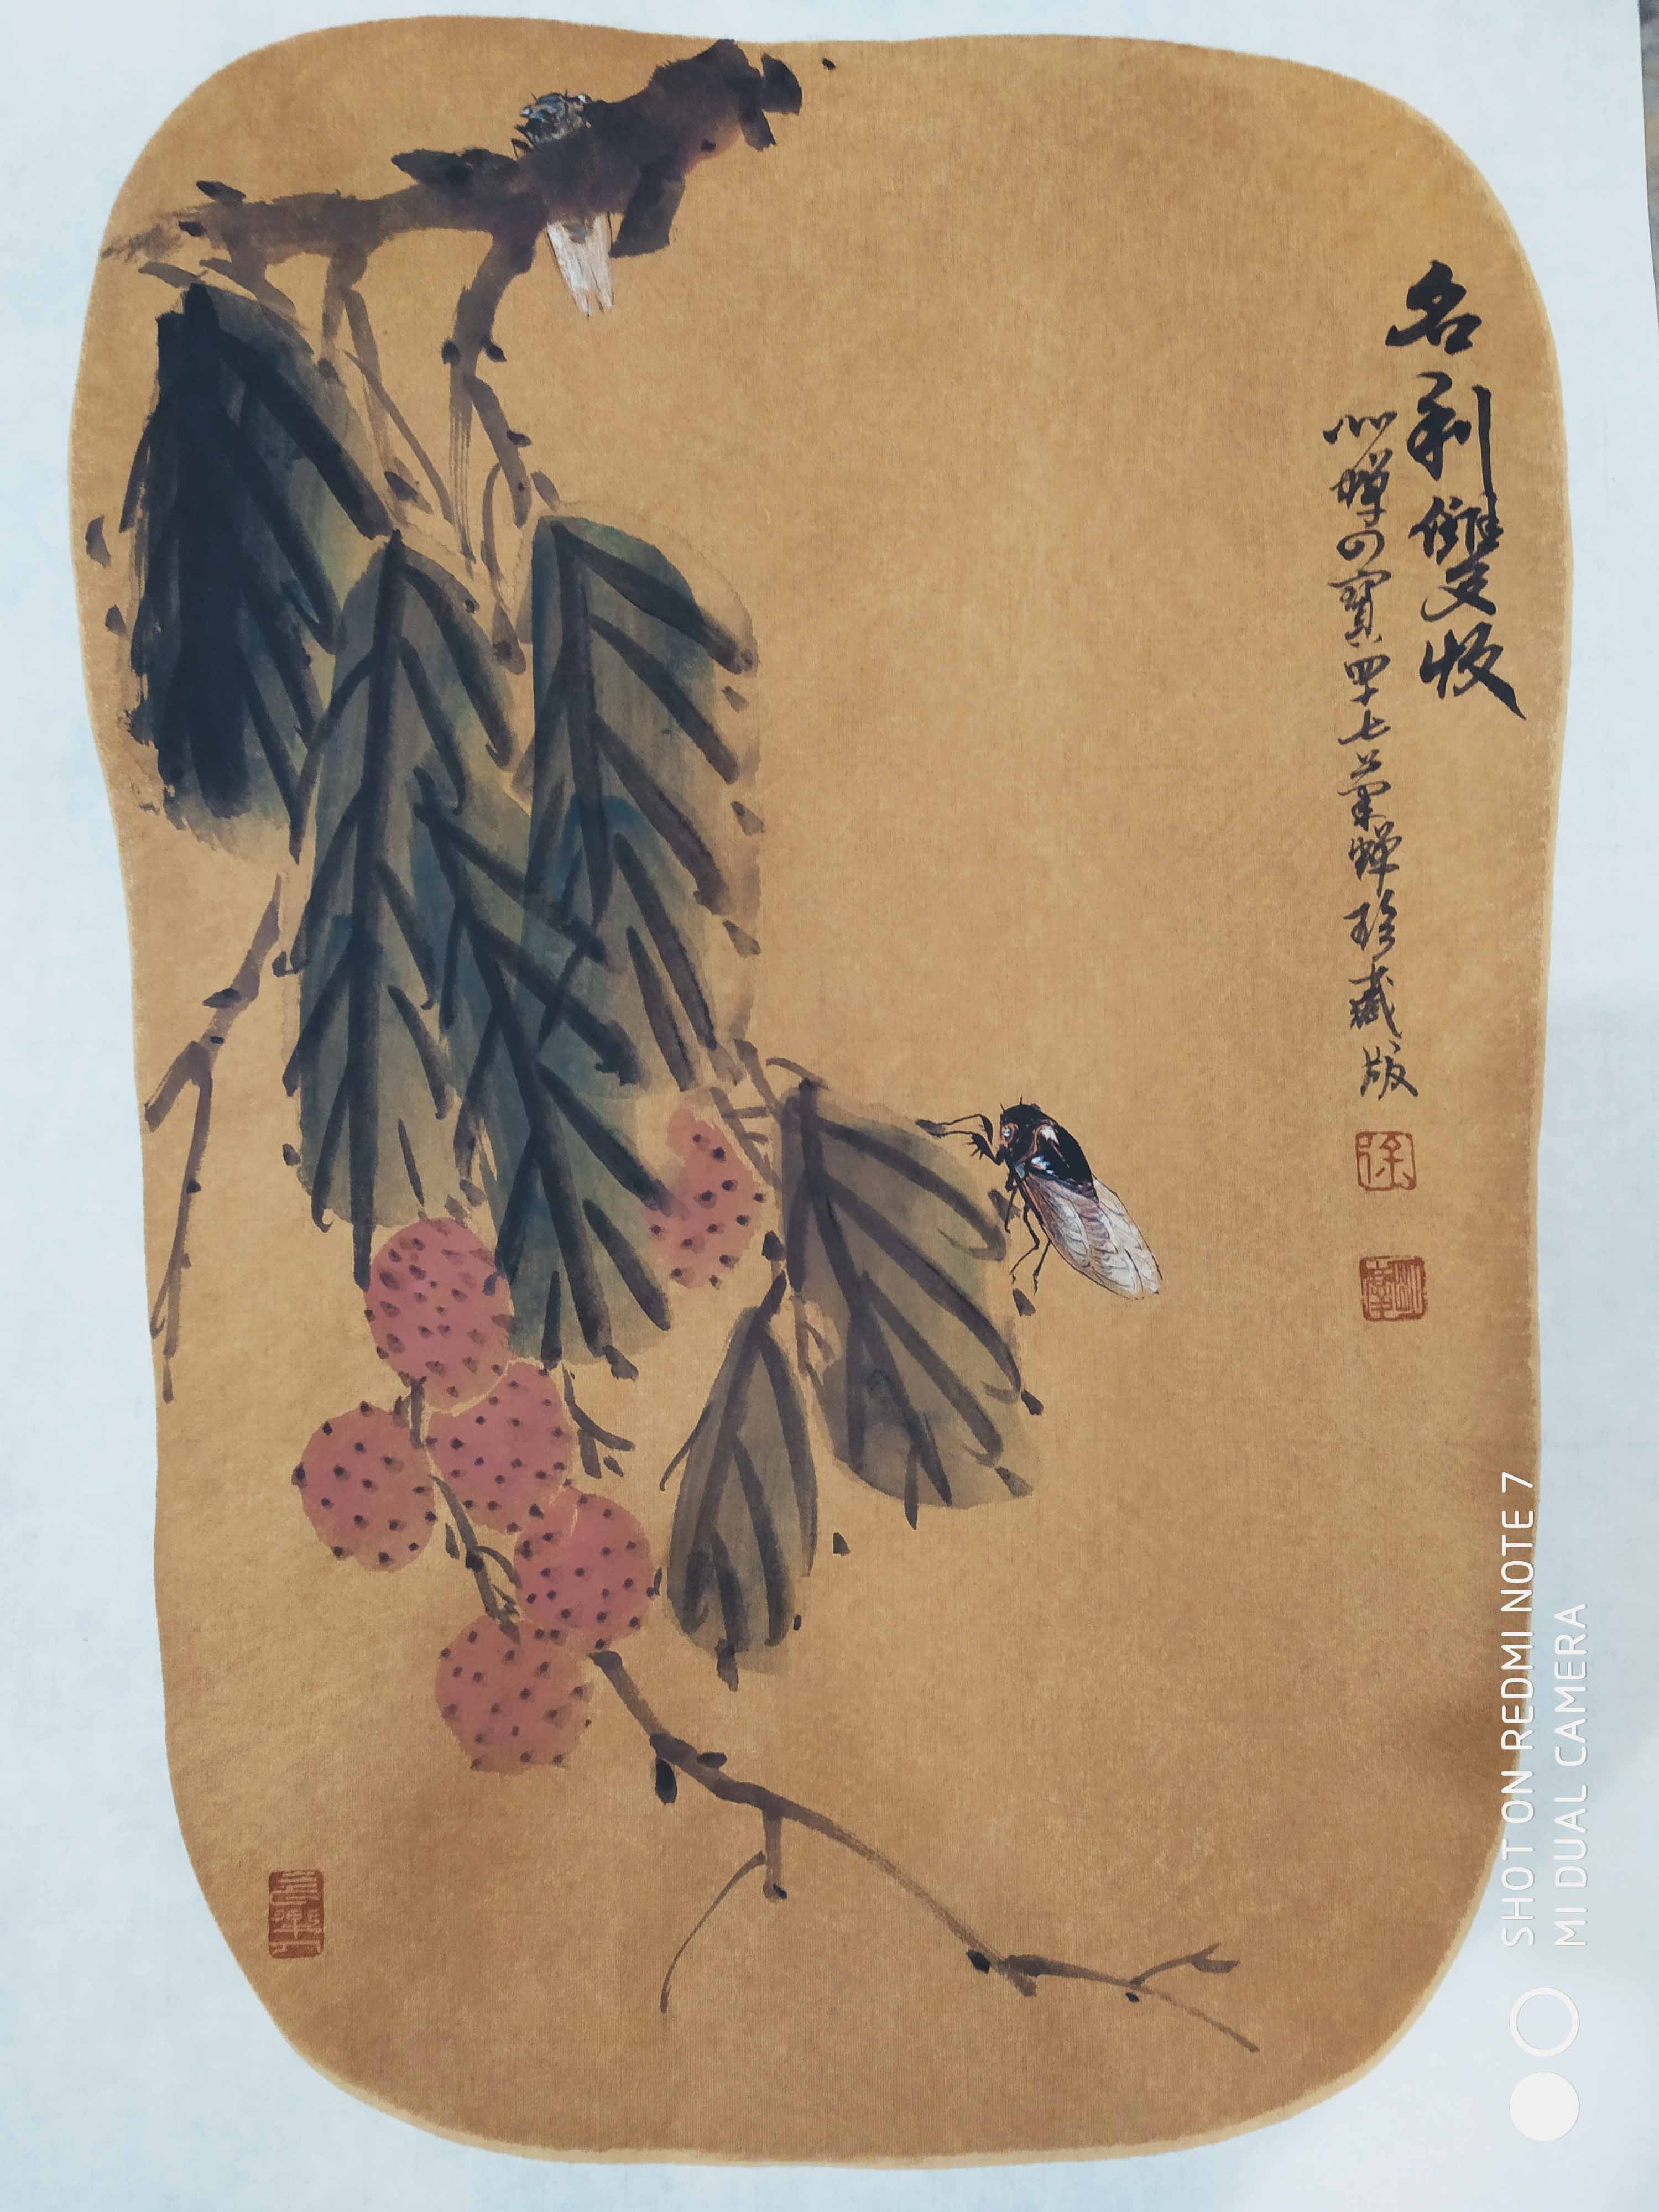 名利雙收
心蟬の寶 四十七 蟬珍藏版
徐
SHOT ON REDMI NOTE 7
MI DUAL CAMERA